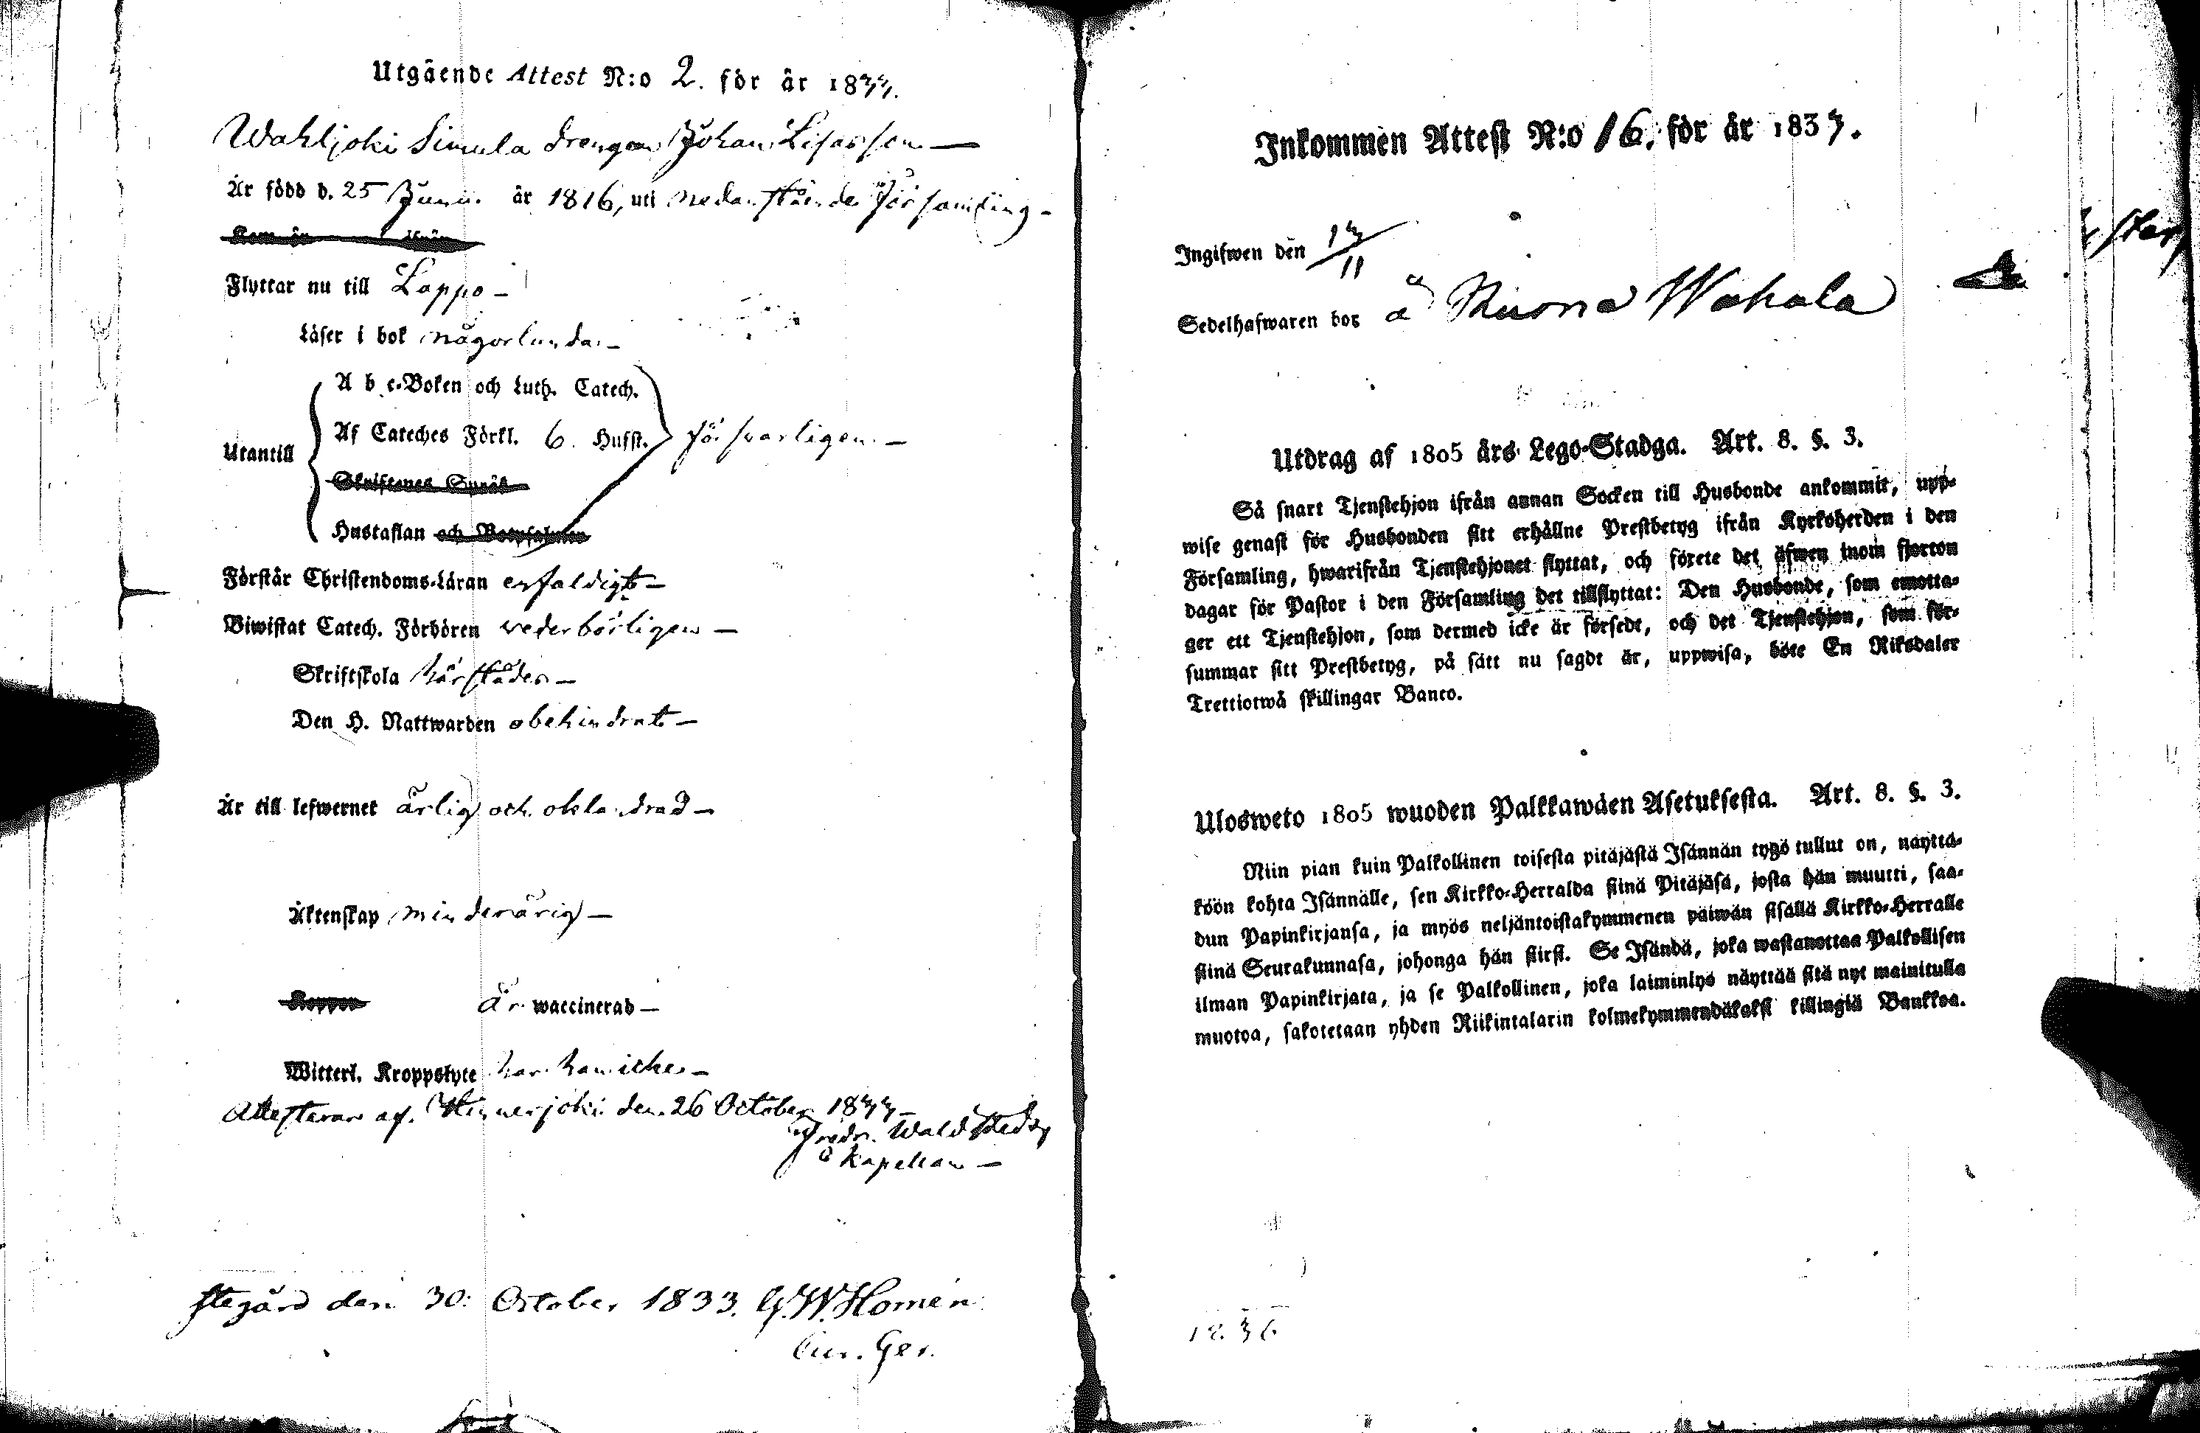 Utgående Attest N:o 2. för år 1833.
Wahljoki Simula drengen Johan Lisasson
Är född d. 25 Junii år 1816, uti nedanstående församling
Kom år ifrån
Flyttar nu till Loppo
Läser i bok någorlunda
A b c-Boken och Luth. Catech.
Utantill Af Cateches Förkl. 6. Hufst. försvarligen
Skriftenes Språk
Hustaflan och Botpsalmen
Förstår Christendoms-Läran enfaldigt
Biwistat Catech. Förhören vederbörligen
Skriftskola härstädes
Den H. Nattwarden obehindrat
Är till lefwernet ärlig och oklandrad
Äktenskap minderårig
Koppor är waccinerad
Witterl. Kroppslyte har han icke
Attesteras af Hinnerjoki den 26 October 1833
Fredr. Waldstedt
Kapellan
stegård den 30: October 1833. G.W. Homén
Cur. Ger.
Inkommen Attest N:o 16. för år 1833.
Ingifwen den 13/11
Sedelhafwaren bor å Wahala
Utdrag af 1805 års Lego-Stadga. Art. 8. §. 3.
Så snart Tjenstehjon ifrån annan Socken till Husbonde ankommit, upp-
wise genast för Husbonden sitt erhållne Prestbetyg ifrån Kyrkoherden i den
Församling, hwarifrån Tjenstehjonet flyttat, och förete det äfwen inom fjorton
dagar för Pastor i den Församling det tillflyttat: Den Husbonde, som emotta-
ger ett Tjenstehjon, som dermed icke är försedt, och det Tjenstehjon, som för-
summar sitt Prestbetyg, på sätt nu sagdt är, uppwisa, böte En Riksdaler
Trettiotwå skillingar Banco.
Ulosweto 1805 wuoden Palkkawäen Asetuksesta. Art. 8. §. 3.
Niin pian kuin Palkollinen toisesta pitäjästä Isännän tygö tullut on, näyttä-
köön kohta Isännälle, sen Kirkko-Herralda siinä Pitäjäsä, josta hän muutti, saa-
dun Papinkirjansa, ja myös neljäntoistakymmenen päiwän sisällä Kirkko-Herralle
siinä Seurakunnasa, johonga hän siirsi. Se Isändä, joka wastanottaa Palkollisen
ilman Papinkirjata, ja se Palkollinen, joka laiminlyö näyttää sitä nyt mainitulla
muotoa, sakotetaan yhden Riikintalarin kolmekymmendäkaksi killingiä Bankkoa.